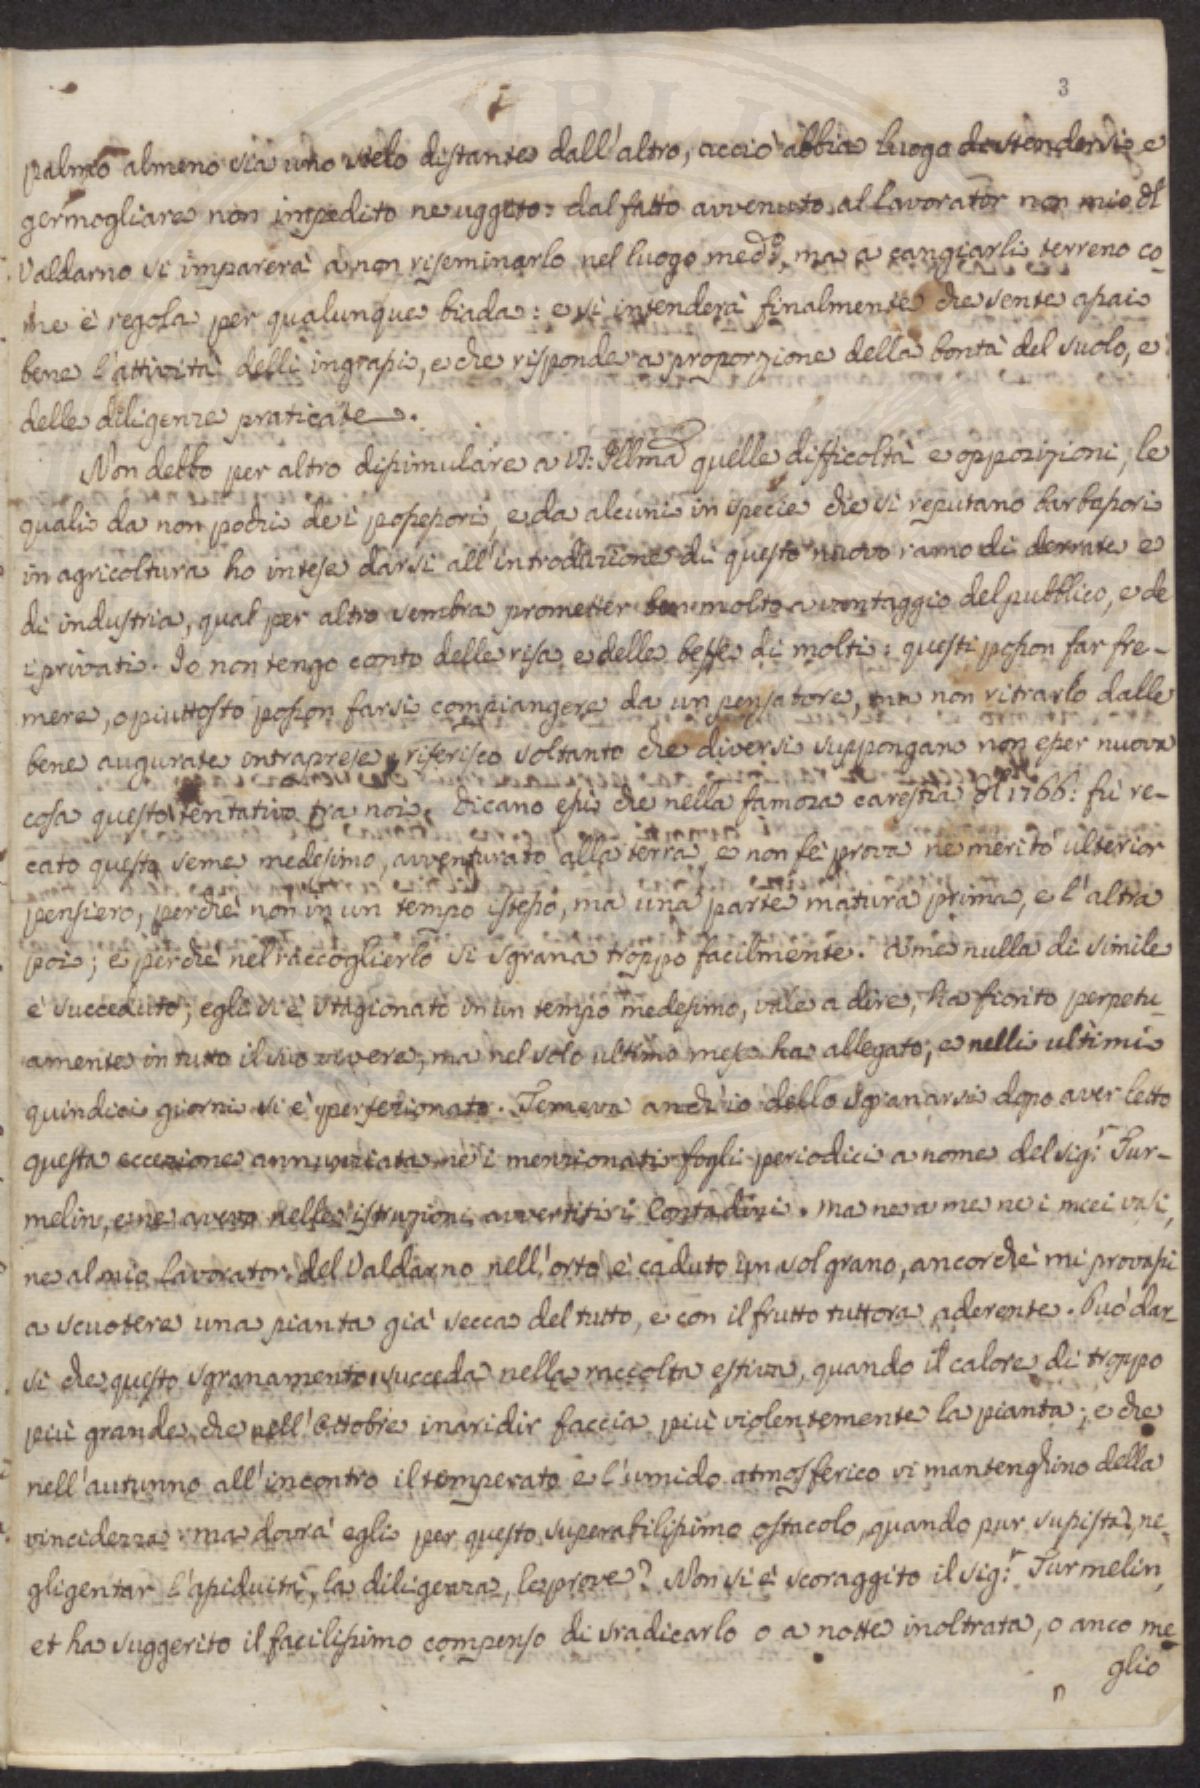 3
palmo almeno sia uno stelo distante dall'altro, acciò abbia luogo da stendersi e
germogliare non impedito ne uggito: dal fatto avvenuto al Lavorator non mio del
Valdarno si imparerà a non riseminarlo nel luogo med.º, ma a cangiarli terreno co-
me è regola per qualunque biada: e si intenderà finalmente che sente assai
bene l'attività delli ingrassi, e che risponde a proporzione della bontà del suolo, e
delle diligenze praticate.
Non debbo per altro dissimulare a V.S. Illma quelle difficoltà e opposizioni, le
quali da non pochi de i possessori, e da alcuni in specie che si reputano barbassori
in agricoltura ho intese darsi all'introduzione di questo nuovo ramo di derrate e
di industria, qual per altro sembra prometter ben molto a vantaggio del pubblico, e de
i privati. Io non tengo conto delle risa e delle beffe di molti: questi posson far fre-
mere, o piuttosto posson farsi compiangere da un pensatore, ma non ritrarlo dalle
bene augurate intraprese; riferisco soltanto che diversi suppongano non esser nuova
cosa questo tentativo tra noi. Dicano essi che nella famosa carestia del 1766: fu re-
cato questo seme medesimo, avventurato alla terra, e non fe' prova ne meritò ulterior
pensiero, perchè non in un tempo istesso, ma una parte matura prima, e l'altra
poi; e perchè nel raccoglierlo si sgrana troppo facilmente. A me nulla di simile
è succeduto; egli si è stagionato in un tempo medesimo, vale a dire, ha fiorito perpetu-
amente in tutto il suo vivere, ma nel solo ultimo mese ha allegato; e nelli ultimi
quindici giorni si è perfezionato. Temeva anch'io dello sgranarsi dopo aver letto
questa eccezione annunziata nè i menzionati fogli periodici a nome del Sig.r Tur-
melin, e ne aveva nelle istruzioni avvertiti i Contadini. ma ne a me ne i miei vasi,
ne al mio Lavorator del Valdarno nell'orto è caduto un sol grano, ancorchè mi provassi
a scuotere una pianta già secca del tutto, e con il frutto tuttora aderente. Può dar-
si che questo sgranamento succeda nella raccolta estiva, quando il calore di troppo
più grande che nell'Ottobre inaridir faccia più violentemente la pianta; e che
nell'autunno all'incontro il temperato e l'umido atmosferico vi mantenghino della
vincidezza: ma dovrà egli per questo superabilissimo ostacolo, quando pur sussista, ne-
gligentar l'assiduità, la diligenza, le prove? Non si è scoraggito il Sig.r Turmelin,
et ha suggerito il facilissimo compenso di sradicarlo o a notte inoltrata, o anco me-
glio